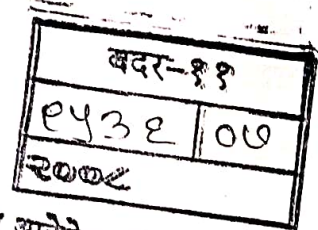 बदर-११
१५३६ ०७
२००८